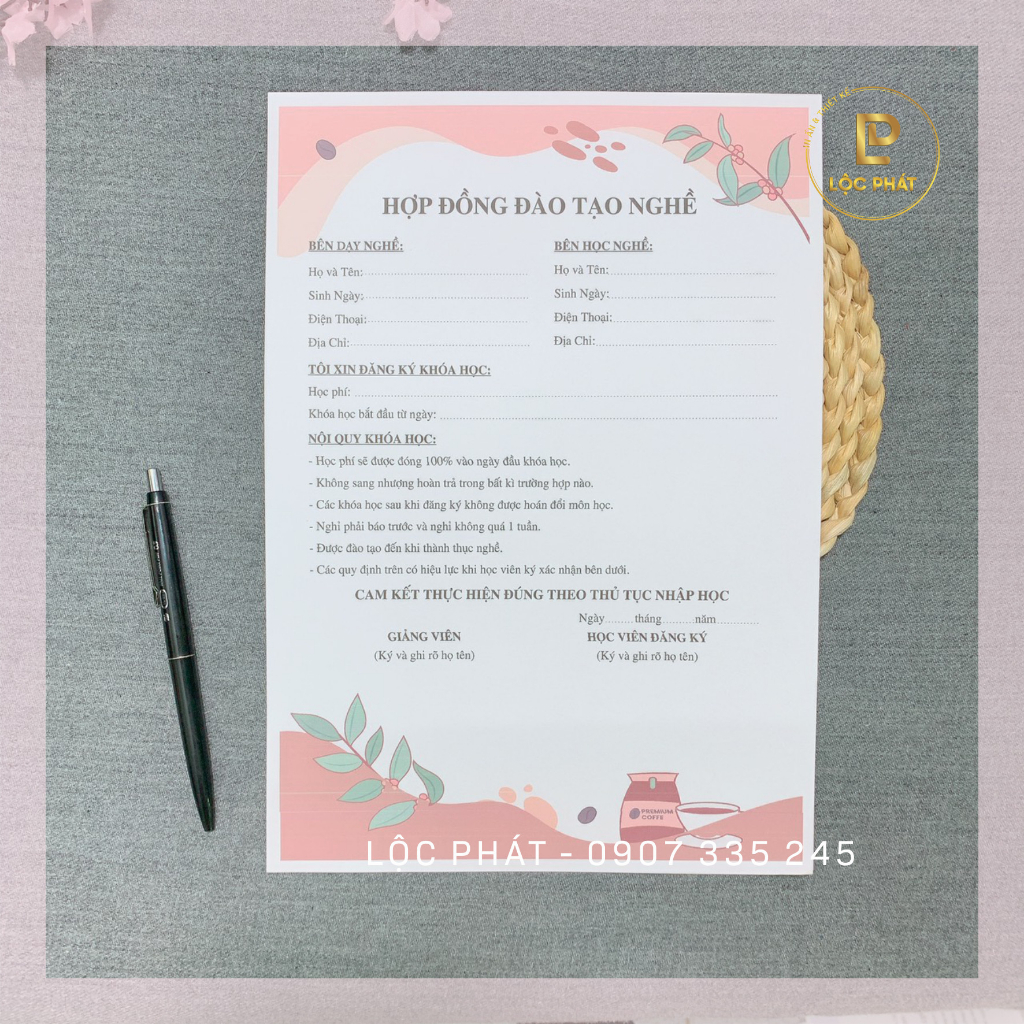 IN ẤN & THIẾT KẾ
LỘC PHÁT
HỢP ĐỒNG ĐÀO TẠO NGHỀ
BÊN DẠY NGHỀ:
Họ và Tên:
Sinh Ngày:
Điện Thoại:
Địa Chỉ:
BÊN HỌC NGHỀ:
Họ và Tên:
Sinh Ngày:
Điện Thoại:
Địa Chỉ:
TÔI XIN ĐĂNG KÝ KHÓA HỌC:
Học phí:
Khóa học bắt đầu từ ngày:
NỘI QUY KHÓA HỌC:
- Học phí sẽ được đóng 100% vào ngày đầu khóa học.
- Không sang nhượng hoàn trả trong bất kì trường hợp nào.
- Các khóa học sau khi đăng ký không được hoán đổi môn học.
- Nghỉ phải báo trước và nghỉ không quá 1 tuần.
- Được đào tạo đến khi thành thục nghề.
- Các quy định trên có hiệu lực khi học viên ký xác nhận bên dưới.
CAM KẾT THỰC HIỆN ĐÚNG THEO THỦ TỤC NHẬP HỌC
Ngày.........tháng.........năm............
GIẢNG VIÊN
(Ký và ghi rõ họ tên)
HỌC VIÊN ĐĂNG KÝ
(Ký và ghi rõ họ tên)
PREMIUM
COFFE
LỘC PHÁT - 0907 335 245